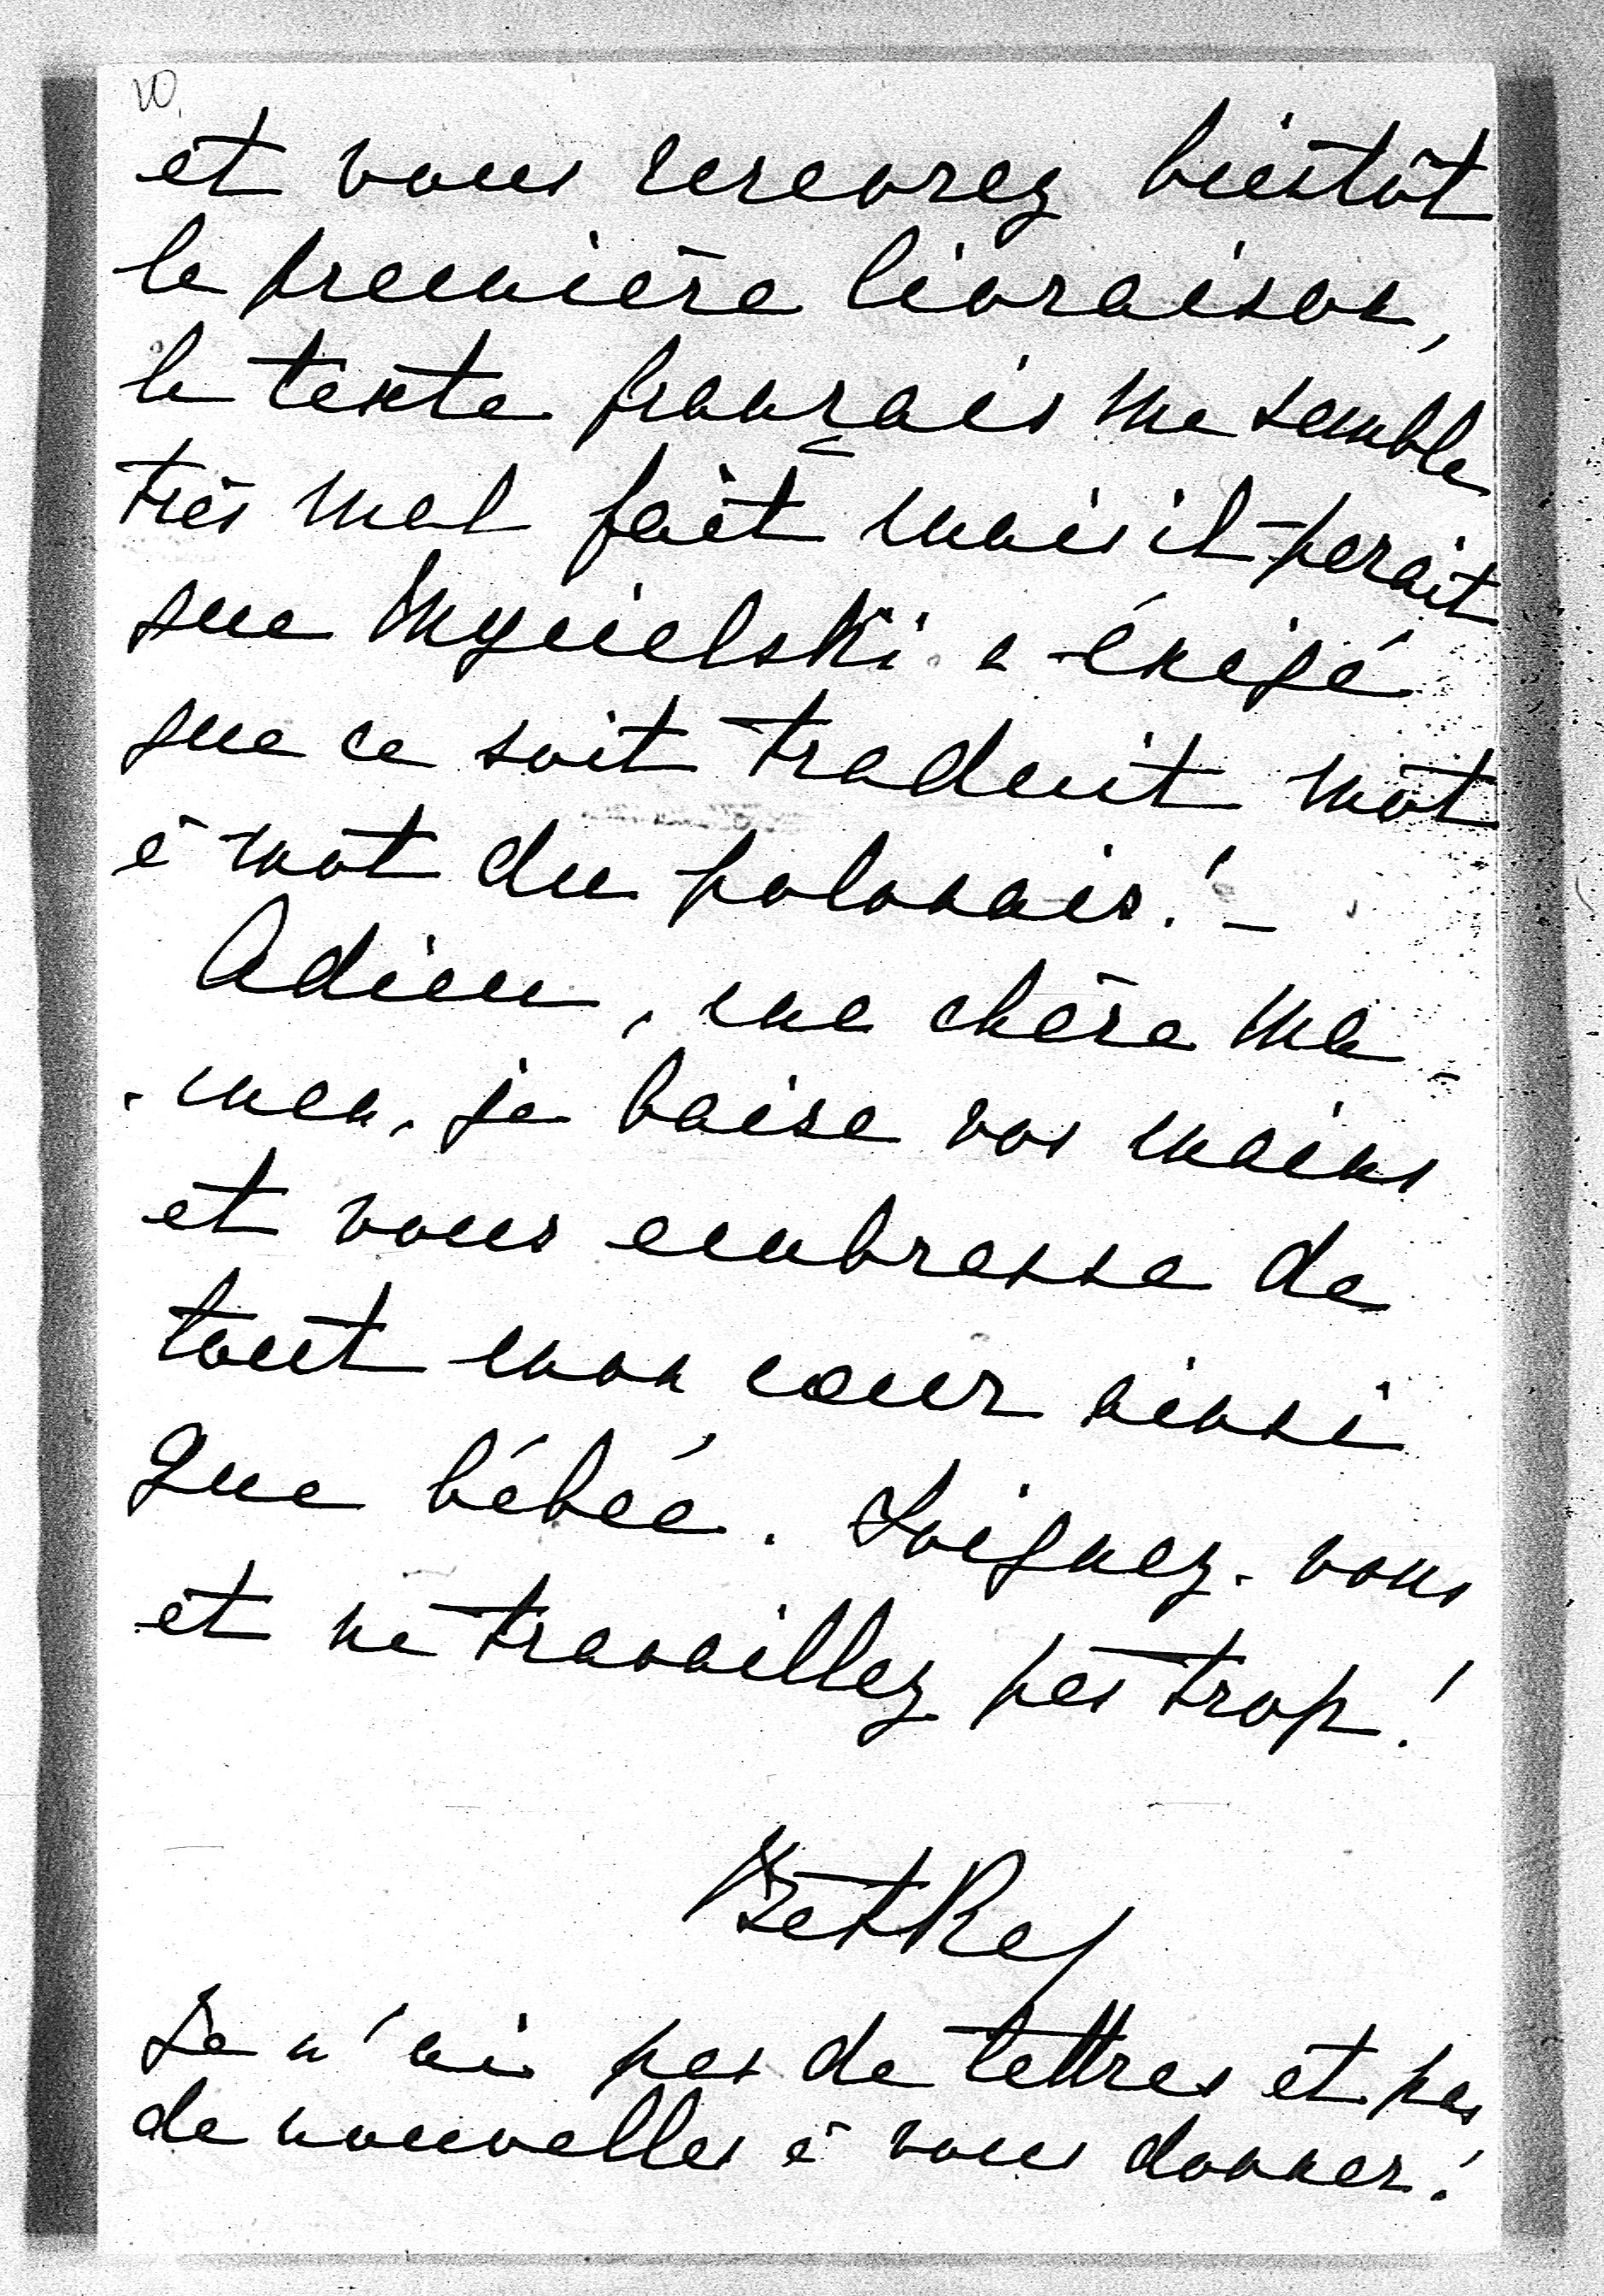 10.
et vous recevrez bientôt
la première livraison,
le texte français me semble
très mal fait mais il paraît
que Mycielski a éxigé
que ce soit traduit mot
à mot du polonais! –
Adieu, ma chère ma-
-man, je baise vos mains
et vous embrasse de
tout mon cœur ainsi
que bébée. Soignez-vous
et ne travaillez pas trop!
Betka
Je n'ai pas de lettres et pas
de nouvelles à vous donner!